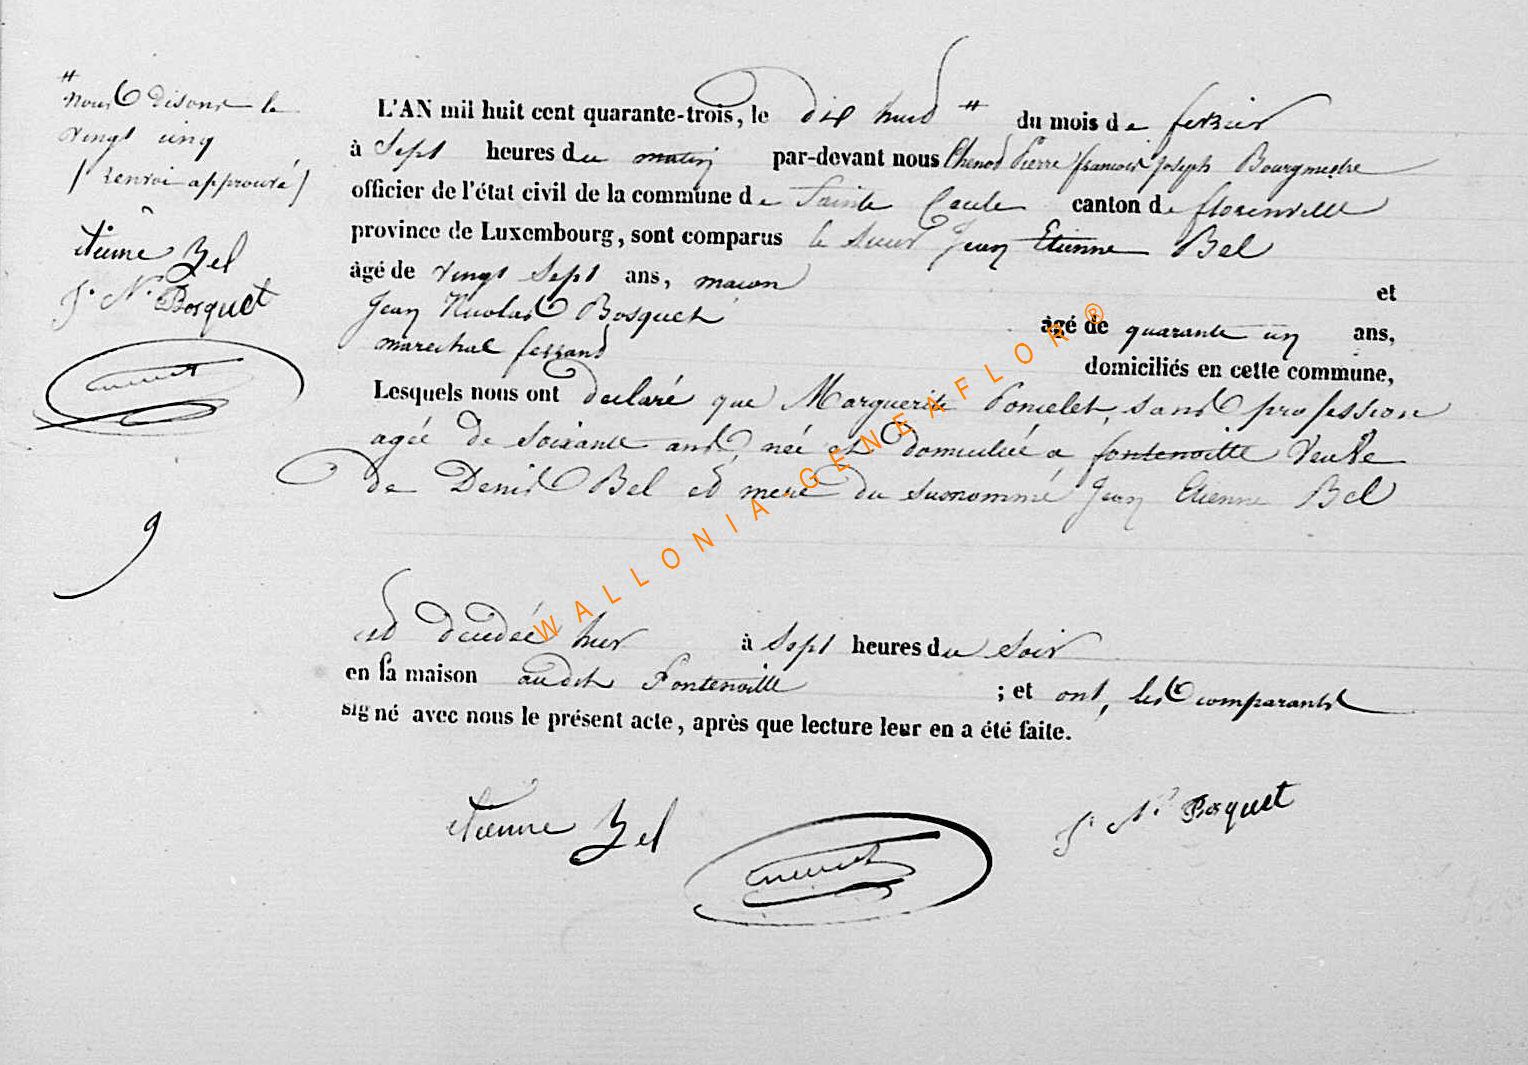 "
nous disons le
vingt cinq
/ renvoi approuvé /
etienne Bel
J. N. Bosquet
9
L'AN mil huit cent quarante-trois, le dix huit " du mois de fevrier
à Sept heures du matin par-devant nous Pierre françois joseph Bourgmestre
officier de l'état civil de la commune de Sainte Cecile canton de florenville
province de Luxembourg, sont comparus le sieur Jean Etienne Bel
âgé de vingt Sept ans, maçon et
Jean Nicolas Bosquet âgé de quarante un ans,
marechal ferrand domiciliés en cette commune,
Lesquels nous ont declaré que Marguerite Poncelet, sans profession
agée de soixante ans, née et domiciliée a fontenoille veuve
de Denis Bel et mere du susnommé Jean Etienne Bel
est decedée hier à Sept heures du soir
en sa maison audit Fontenoille ; et ont, les comparants
signé avec nous le présent acte, après que lecture leur en a été faite.
etienne Bel
J. N. Bosquet
WALLONIA-GENEAFLOR®